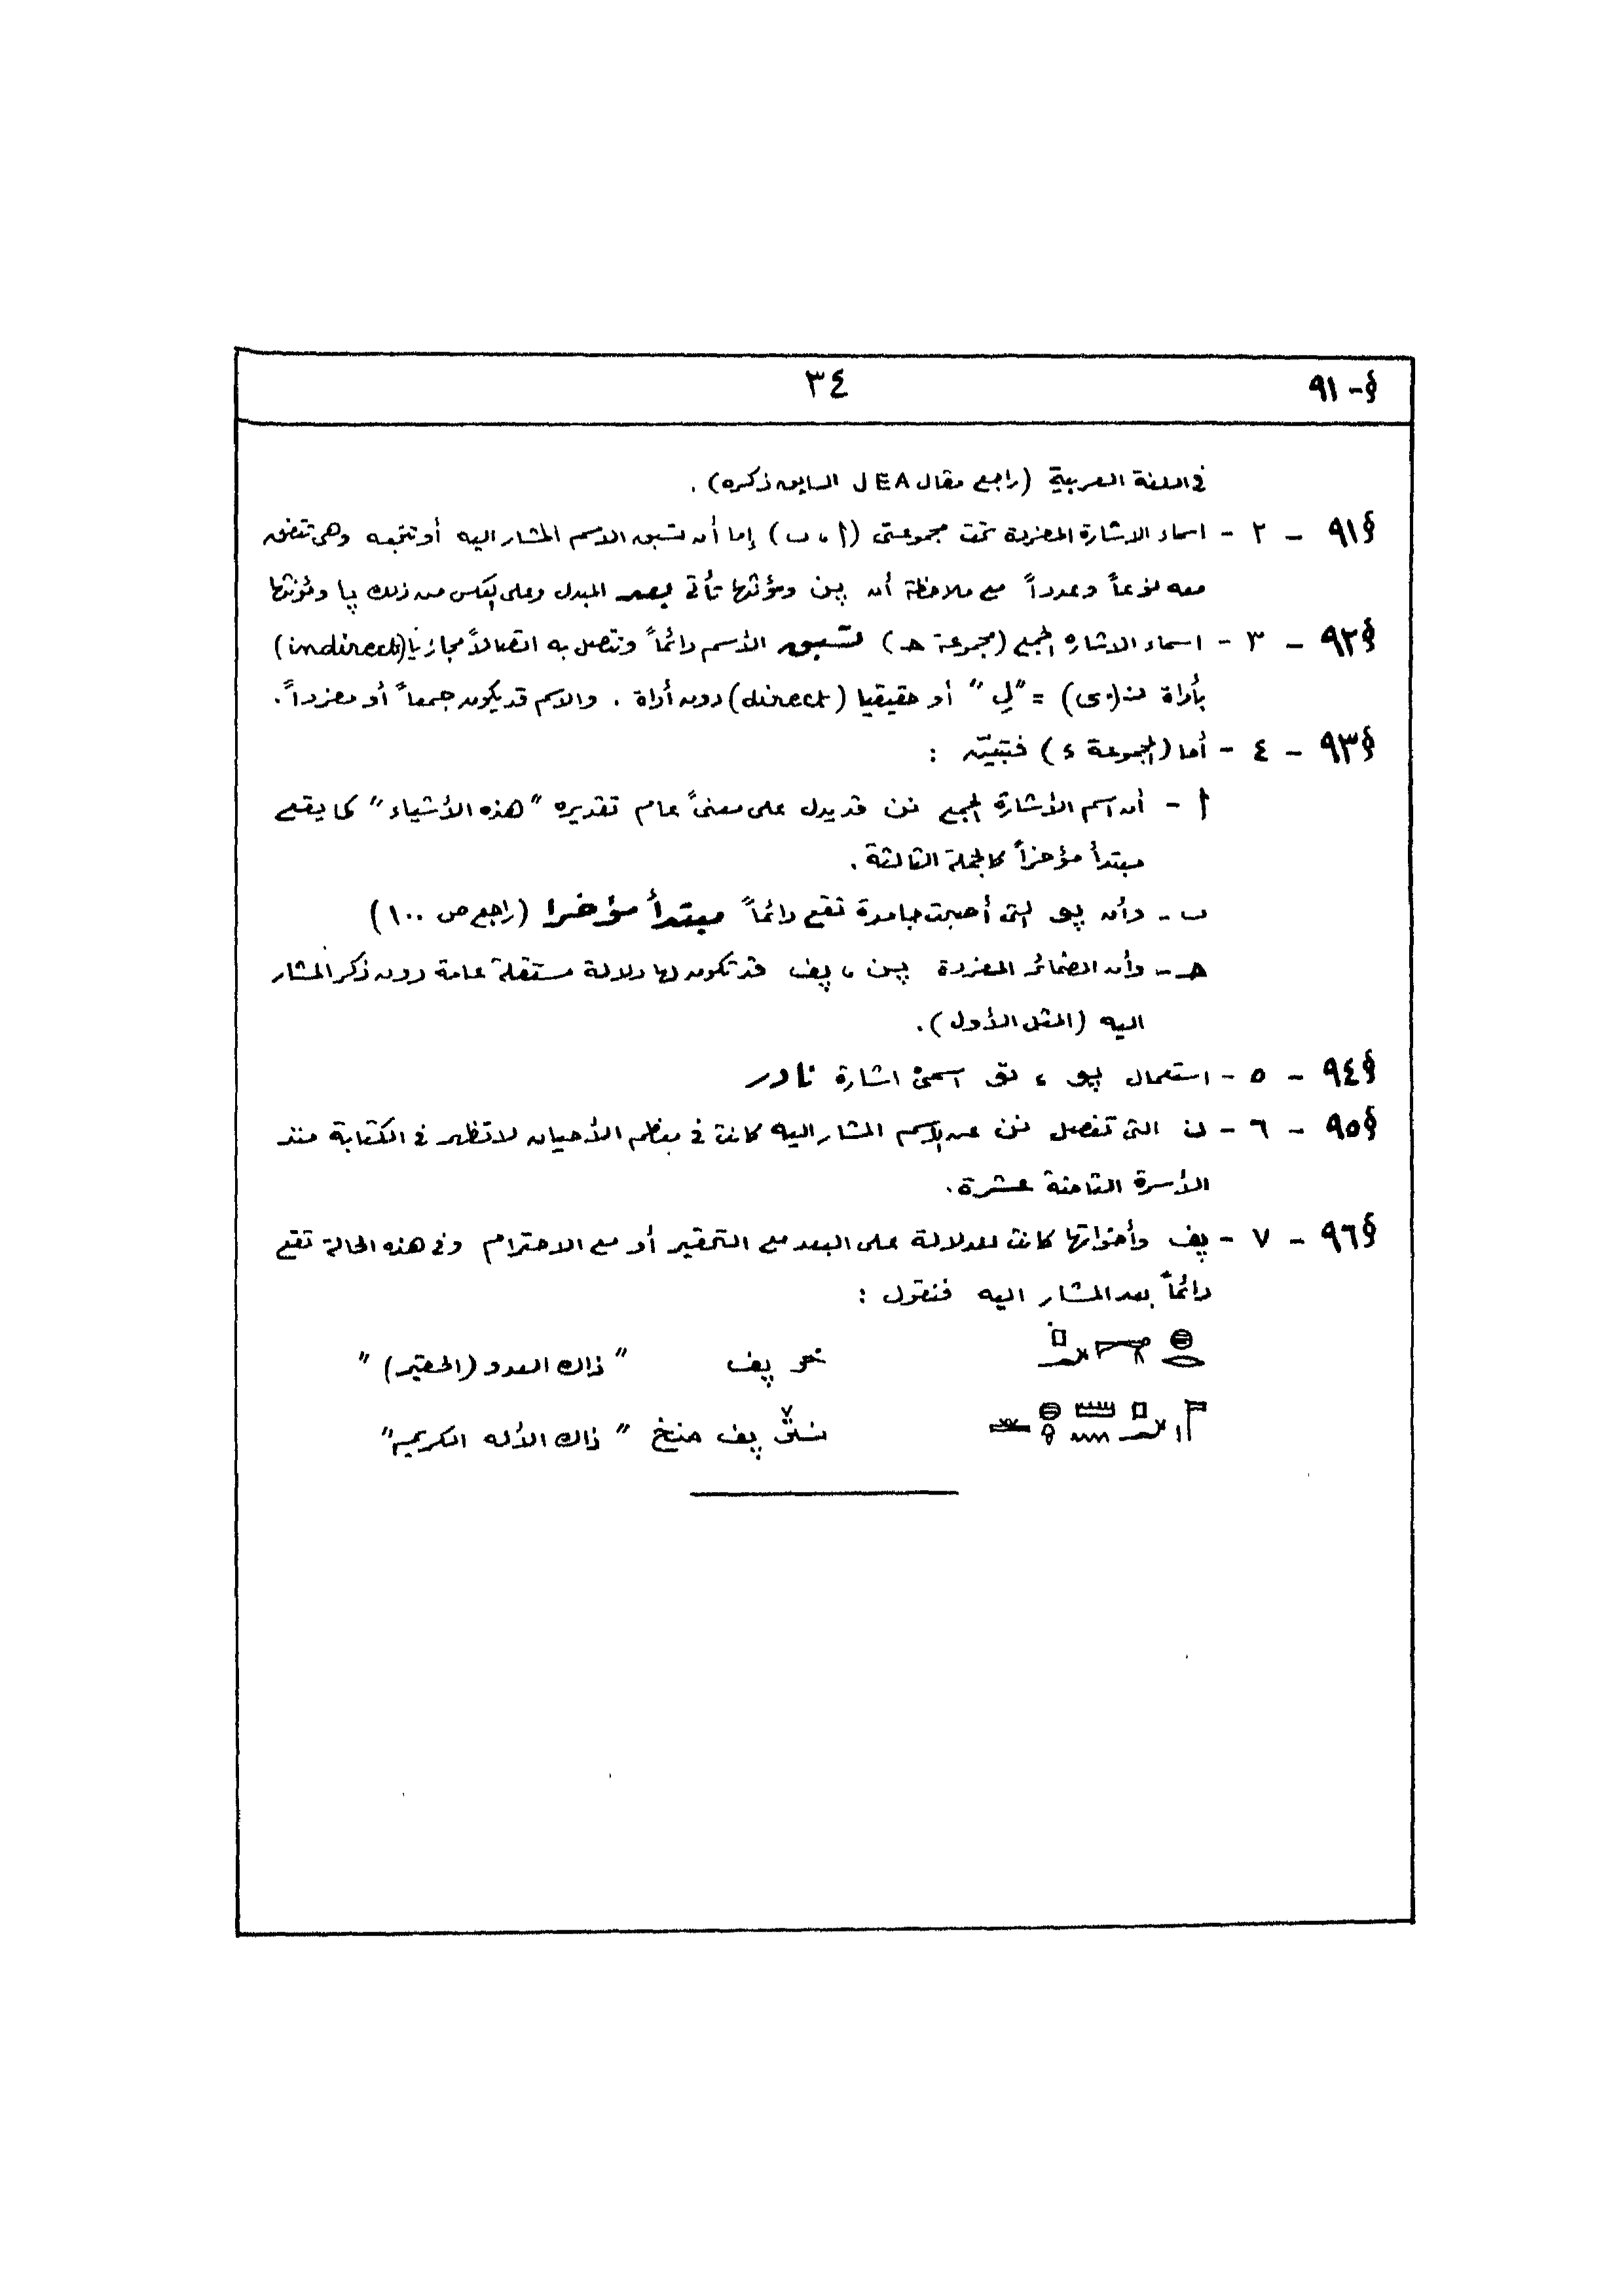 § - ٩١
٣٤
في اللغة العربية (راجع مقال JEA السابق ذكره).
§٩١ - ٢ - اسماء الاشارة المفردة تحت مجموعتى (أ ، ب) إما أن تسبق الاسم المشار اليه أو تتبعه وهى تتفق
معه نوعاً وعدداً مع ملاحظة أن پن ومؤنثها تأتى بعد المبدل وعلى العكس من ذلك پا ومؤنثها
§٩٢ - ٣ - اسماء الاشارة الجمع (مجموعة حـ) تسبق الأسم دائماً وتتصل به اتصالاً مجازيا (indirect)
بأداة ن(ى) = "لِ" أو حقيقيا (direct) دون أداة . والاسم قد يكون جمعاً أو مفرداً .
§٩٣ - ٤ - أما (المجموعة ء) فتبيّن :
أ - أن اسم الأشارة الجمع نن قد يدل على معنىً عام تقديره "هذه الأشياء" كما يقع
مبتدأ مؤخراً كالجملة الثالثة .
ب - وأن پو التى أصبحت جامدة تقع دائماً مبتدأ مؤخرا (راجع ص ١٠٠)
حـ - وأن الضمائر المفردة پن ، پف قد تكون لها دلالة مستقلة عامة دون ذكر المشار
اليه (المثل الأول) .
§٩٤ - ٥ - استعمال پو ، تو اسمىْ اشارة نادر
§٩٥ - ٦ - ن التى تفصل نن عن الاسم المشار اليه كانت في معظم الأحيان لا تظهر في الكتابة منذ
الأسرة الثامنة عشرة .
§٩٦ - ٧ - پف وأخواتها كانت للدلالة على البعد مع التحقير أو مع الاحترام وفى هذه الحالة تقع
دائماً بعد المشار اليه فنقول :
خر پف "ذاك العدو (الحقير)"
پف منخ "ذاك الأله الكريم"